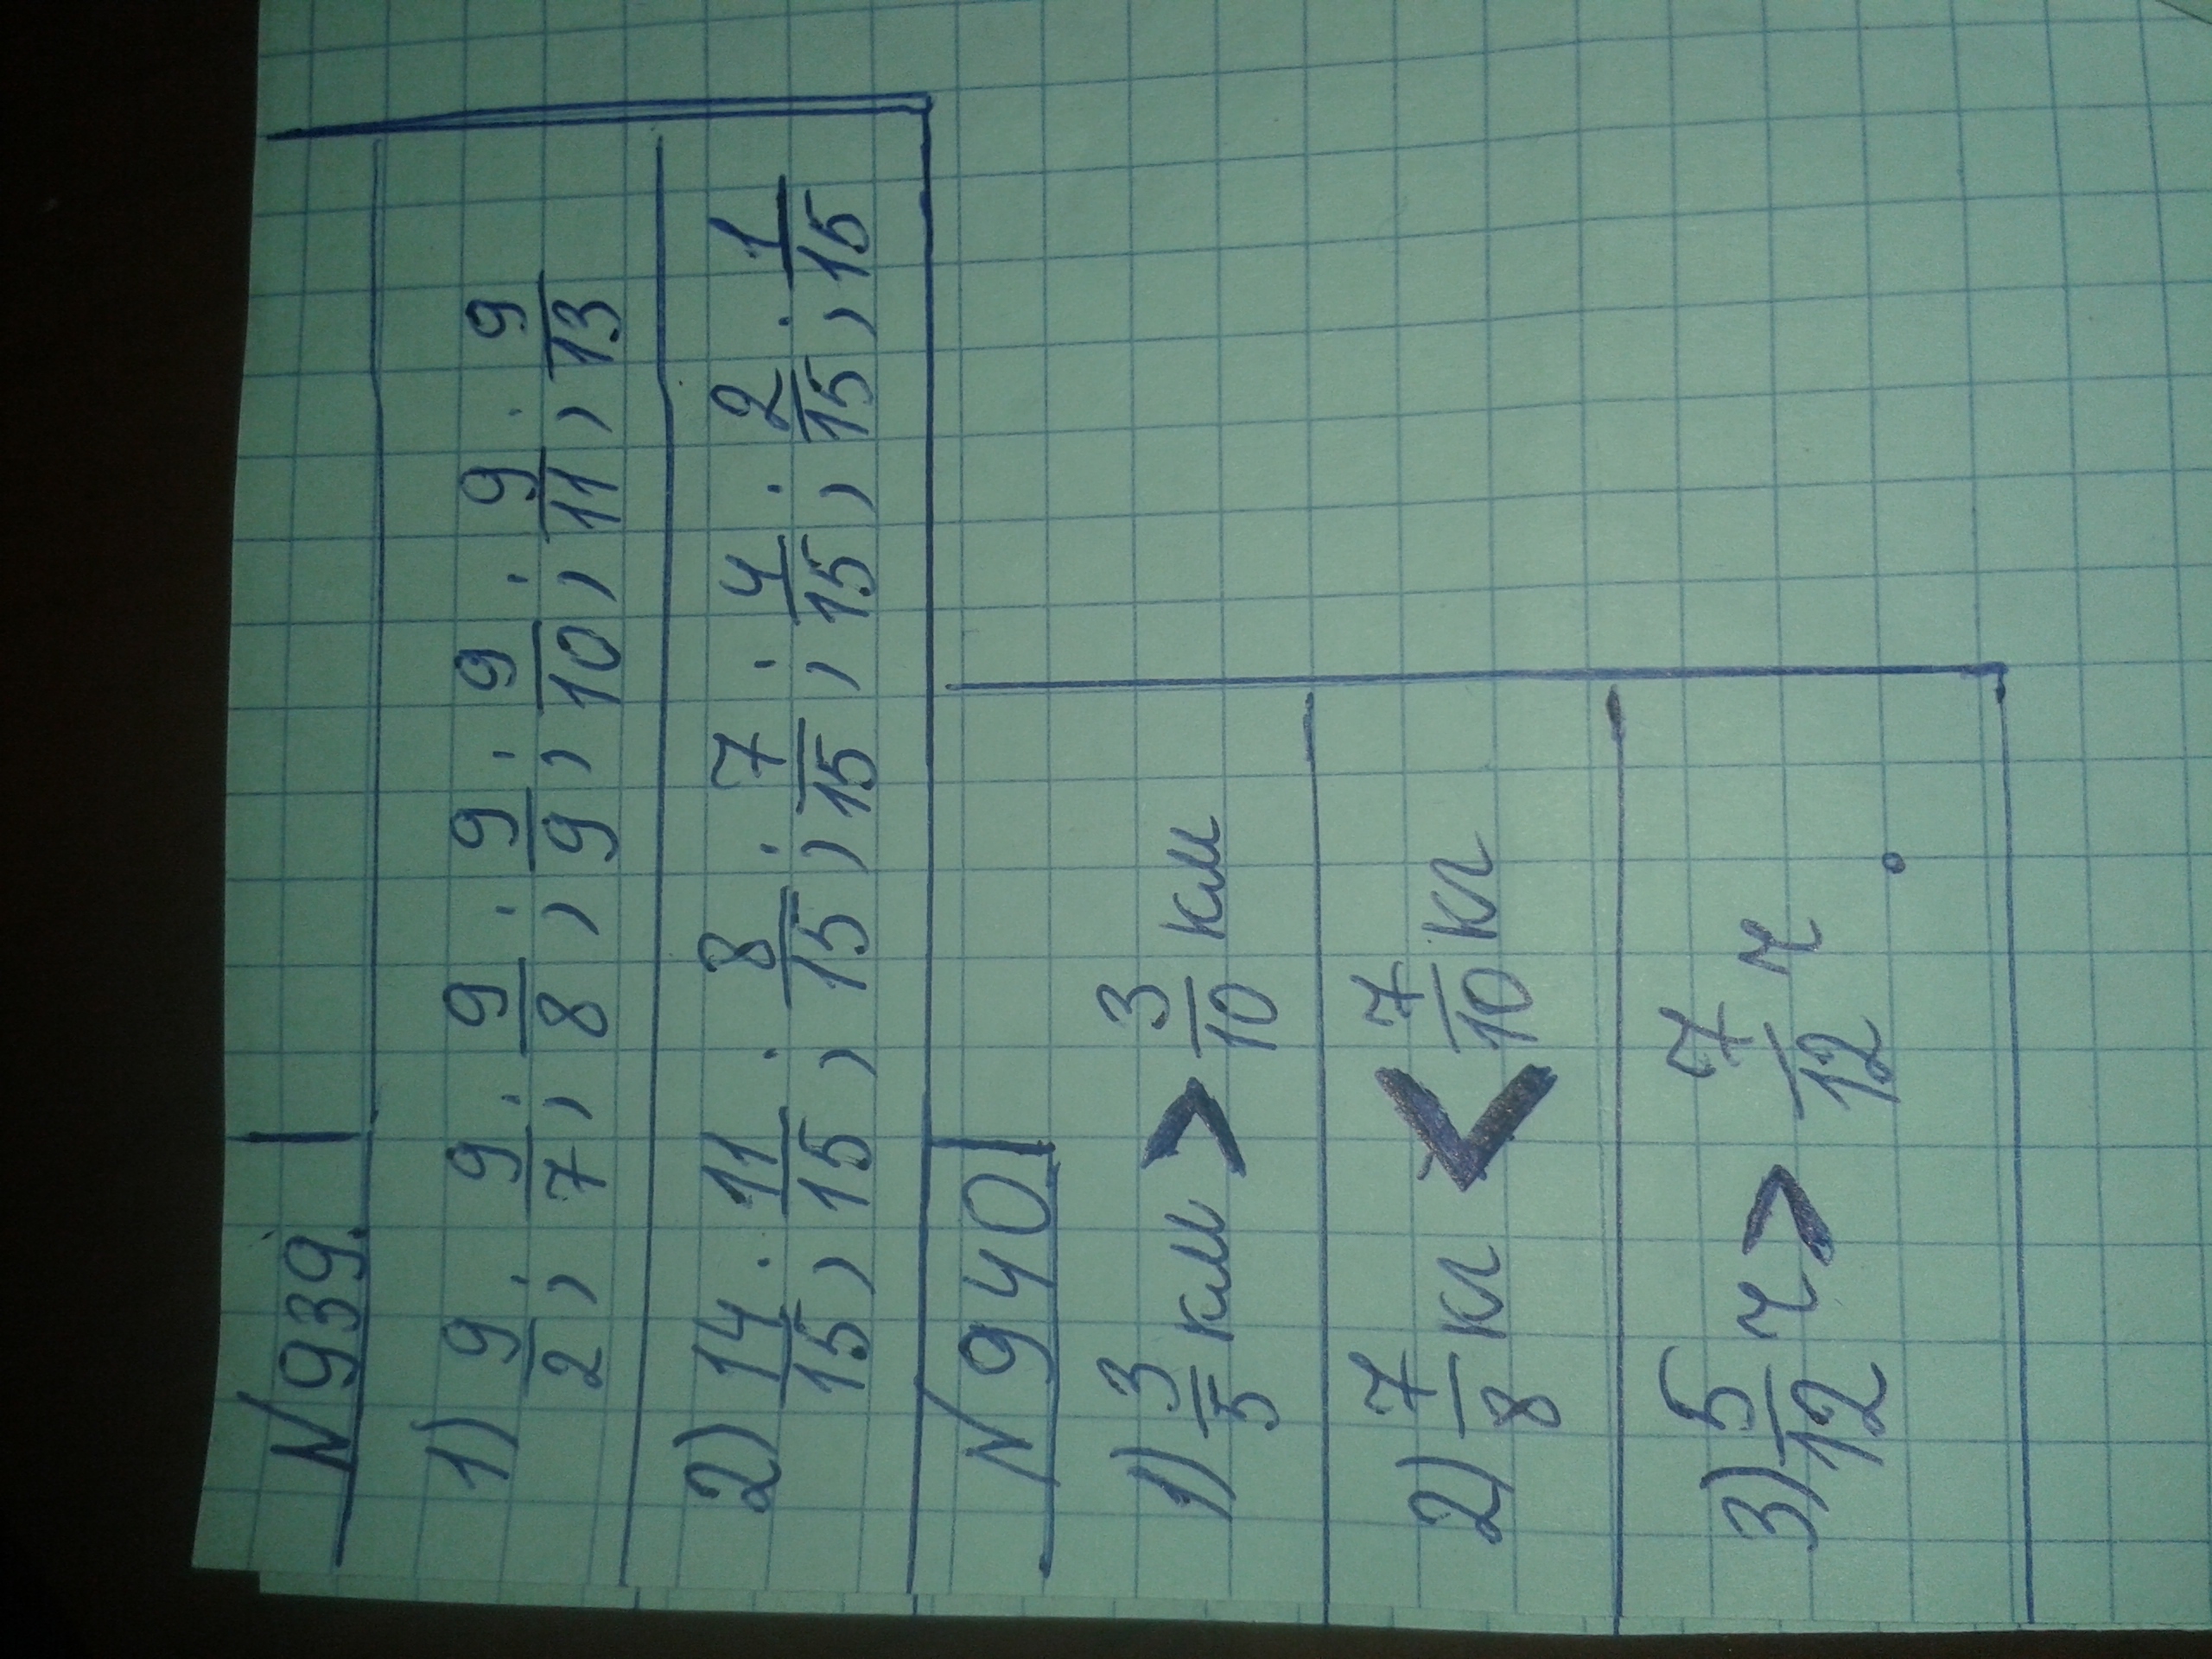 N 939.
1) 9/2; 9/7; 9/8; 9/9; 9/10; 9/11; 9/13
2) 14/15; 11/15; 8/15; 7/15; 4/15; 2/15; 1/15
N 940
1) 3/5 км > 3/10 км
2) 7/8 кг < 7/10 кг
3) 5/12 ч > 7/12 ч.